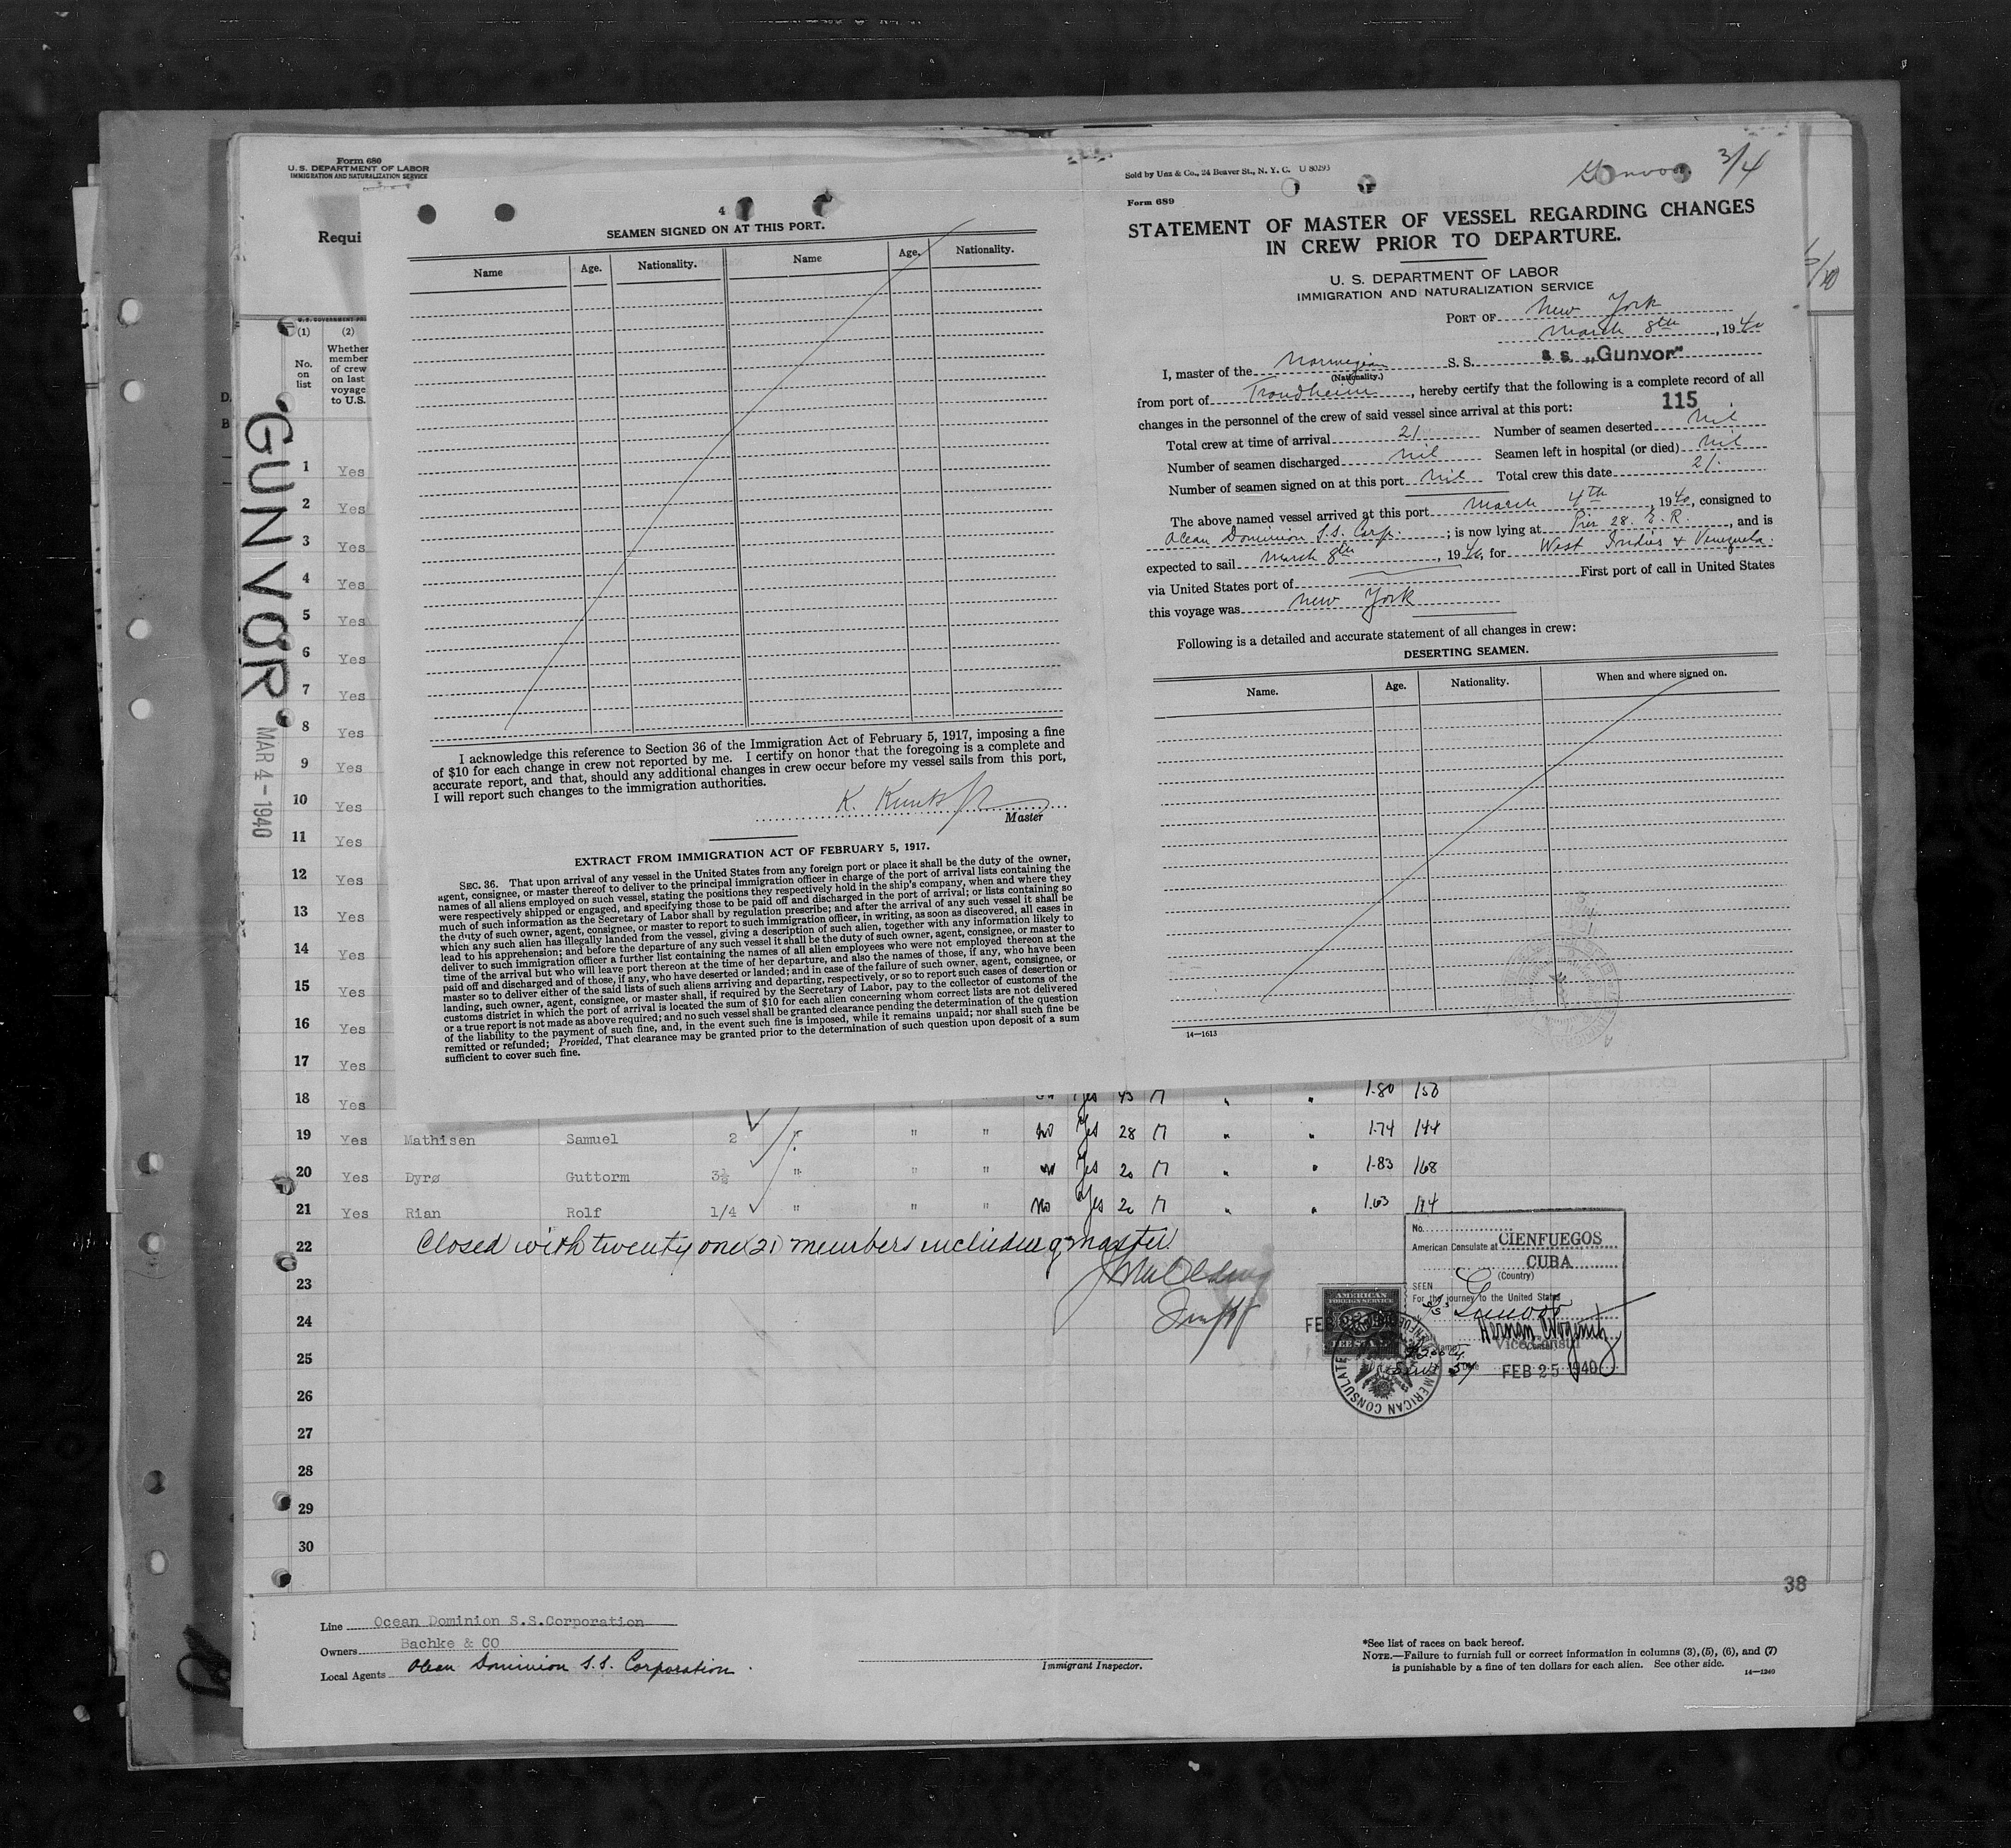 Form 680
U. S. DEPARTMENT OF LABOR
IMMIGRATION AND NATURALIZATION SERVICE
Requi
(1)
(2)
No. on list
Whether member of crew on last voyage to U.S.
GUNVOR
MAR 4 - 1940
1 Yes
2 Yes
3 Yes
4 Yes
5 Yes
6 Yes
7 Yes
8 Yes
9 Yes
10 Yes
11 Yes
12 Yes
13 Yes
14 Yes
15 Yes
16 Yes
17 Yes
4
SEAMEN SIGNED ON AT THIS PORT.
Name Age. Nationality. Name Age. Nationality.
I acknowledge this reference to Section 36 of the Immigration Act of February 5, 1917, imposing a fine
of $10 for each change in crew not reported by me. I certify on honor that the foregoing is a complete and
accurate report, and that, should any additional changes in crew occur before my vessel sails from this port,
I will report such changes to the immigration authorities.
K.
Master
EXTRACT FROM IMMIGRATION ACT OF FEBRUARY 5, 1917.
SEC. 36. That upon arrival of any vessel in the United States from any foreign port or place it shall be the duty of the owner,
agent, consignee, or master thereof to deliver to the principal immigration officer in charge of the port of arrival lists containing the
names of all aliens employed on such vessel, stating the positions they respectively hold in the ship's company, when and where they
were respectively shipped or engaged, and specifying those to be paid off and discharged in the port of arrival; or lists containing so
much of such information as the Secretary of Labor shall by regulation prescribe; and after the arrival of any such vessel it shall be
the duty of such owner, agent, consignee, or master to report to such immigration officer, in writing, as soon as discovered, all cases in
which any such alien has illegally landed from the vessel, giving a description of such alien, together with any information likely to
lead to his apprehension; and before the departure of any such vessel it shall be the duty of such owner, agent, consignee, or master to
deliver to such immigration officer a further list containing the names of all alien employees who were not employed thereon at the
time of the arrival but who will leave port thereon at the time of her departure, and also the names of those, if any, who have been
paid off and discharged and of those, if any, who have deserted or landed; and in case of the failure of such owner, agent, consignee, or
master so to deliver either of the said lists of such aliens arriving and departing, respectively, or so to report such cases of desertion or
landing, such owner, agent, consignee, or master shall, if required by the Secretary of Labor, pay to the collector of customs of the
customs district in which the port of arrival is located the sum of $10 for each alien concerning whom correct lists are not delivered
or a true report is not made as above required; and no such vessel shall be granted clearance pending the determination of the question
of the liability to the payment of such fine, and, in the event such fine is imposed, while it remains unpaid; nor shall such fine be
remitted or refunded; Provided, That clearance may be granted prior to the determination of such question upon deposit of a sum
sufficient to cover such fine.
Sold by Unz & Co., 24 Beaver St., N. Y. C. U 80293
Gunvor 3/4
Form 689
STATEMENT OF MASTER OF VESSEL REGARDING CHANGES
IN CREW PRIOR TO DEPARTURE.
U. S. DEPARTMENT OF LABOR
IMMIGRATION AND NATURALIZATION SERVICE
PORT OF New York
March 8th, 1940
I, master of the Norwegian S. S. S. S. „Gunvor"
(Nationality.)
from port of Trondheim, hereby certify that the following is a complete record of all
115
changes in the personnel of the crew of said vessel since arrival at this port:
Total crew at time of arrival 21 Number of seamen deserted nil
Number of seamen discharged nil Seamen left in hospital (or died) nil
Number of seamen signed on at this port nil Total crew this date 21.
The above named vessel arrived at this port March 4th, 1940, consigned to
Ocean Dominion S.S. Corp.; is now lying at Pier 28. E. R., and is
expected to sail March 8th, 1940, for West Indies & Venezuela.
via United States port of First port of call in United States
this voyage was New York
Following is a detailed and accurate statement of all changes in crew:
DESERTING SEAMEN.
Name. Age. Nationality. When and where signed on.
14—1613
18 Yes Yes 43 M " " 1.80 150
19 Yes Mathisen Samuel 2 " " " no Yes 28 M " " 1.74 144
20 Yes Dyrø Guttorm 3½ " " " no Yes 20 M " " 1.83 168
21 Yes Rian Rolf 1/4 " " " No Yes 20 M " " 1.63 144
22 Closed with twenty one (21) members including master.
23
24
25
26
27
28
29
30
No.
American Consulate at CIENFUEGOS
CUBA
(Country)
SEEN
For the journey to the United States
SS Gunvor
Vice Consul
FEB 25 1940
AMERICAN
FOREIGN SERVICE
AMERICAN CONSULATE
38
Line Ocean Dominion S.S.Corporation
Owners Bachke & CO
Local Agents Ocean Dominion S.S. Corporation.
Immigrant Inspector.
*See list of races on back hereof.
NOTE.—Failure to furnish full or correct information in columns (3), (5), (6), and (7)
is punishable by a fine of ten dollars for each alien. See other side.
14—1240